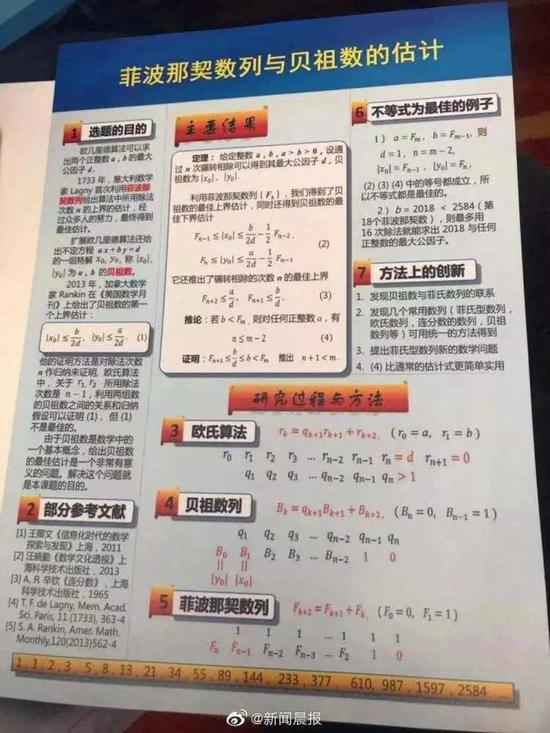 菲波那契数列与贝祖数的估计
1 选题的目的
欧几里德算法可以求
出两个正整数 a, b 的最大
公因子 d。
1733 年，意大利数学
家 Lagny 首次利用菲波那
契数列给出算中所用除法
次数 n 的上界的估计，经
过众多人的努力，最终得到
最佳估计。
扩展欧几里德算法还给
出不定方程 ax+by=d
的一组特解 x₀, y₀, 称 |x₀|,
|y₀| 为 a, b 的贝祖数。
2013 年，加拿大数学
家 Rankin 在《美国数学月
刊》上给出了贝祖数的第一
个上界估计：
|x₀| ≤ b/2d, |y₀| ≤ a/2d. (1)
他的证明方法是对除法次数
n 作归纳来证明。欧氏算法
中，关于 r₁, r₂ 所用除法
次数是 n − 1，利用两组数
的贝祖数之间的关系和归纳
假设可以证明 (1)，但 (1)
不是最佳的。
由于贝祖数是数学中的
一个基本概念，给出贝祖数
的最佳估计是一个非常有意
义的问题。解决这个问题就
是本课题的目的。
2 部分参考文献
[1] 王卿文《信息化时代的数学
探索与发现》上海，2011
[2] 汪晓勤《数学文化透视》上
海科学技术出版社，2013
[3] A. Я. 辛钦《连分数》，上海
科学技术出版社，1965
[4] T. F. de Lagny, Mem. Acad.
Sci. Paris, 11 (1733), 363-4
[5] S. A. Rankin, Amer. Math.
Monthly,120(2013)562-4
主要结果
定理：给定整数 a, b, a > b > 0, 设通
过 n 次辗转相除可以得到其最大公因子 d，贝
祖数为 |x₀|, |y₀|.
利用菲波那契数列 (Fₖ)，我们得到了贝
祖数的最佳上界估计，同时还得到贝祖数的最
佳下界估计
Fₙ₋₁ ≤ |x₀| ≤ b/2d − 1/2 Fₙ₋₂,
(2)
Fₙ ≤ |y₀| ≤ a/2d − 1/2 Fₙ₋₁.
它还推出了辗转相除的次数 n 的最佳上界
Fₙ₊₂ ≤ a/d, Fₙ₊₁ ≤ b/d. (3)
推论：若 b < Fₘ, 则对任何正整数 a，有
n ≤ m − 2 (4)
证明：Fₙ₊₁ ≤ b/d ≤ b < Fₘ 推出 n + 1 < m.
6 不等式为最佳的例子
1）a = Fₘ, b = Fₘ₋₁, 则
d = 1, n = m − 2,
|x₀| = Fₙ₋₁, |y₀| = Fₙ,
(2) (3) (4) 中的等号都成立，所
以不等式都是最佳的。
2）b = 2018 < 2584 (第
18个菲波那契数)，则最多用
16 次除法就能求出 2018 与任何
正整数的最大公因子。
7 方法上的创新
1. 发现贝祖数与菲氏数列的联系
2. 发现几个常用数列（菲氏型数列，
欧氏数列，连分数的数列，贝祖
数列等）可用统一的方法得到
3. 提出菲氏型数列新的数学问题
4. (4) 比通常的估计式更简单实用
研究过程与方法
3 欧氏算法 rₖ = qₖ₊₁rₖ₊₁ + rₖ₊₂, (r₀ = a, r₁ = b)
r₀ r₁ r₂ r₃ … rₙ₋₂ rₙ₋₁ rₙ = d rₙ₊₁ = 0
q₁ q₂ q₃ … qₙ₋₂ qₙ₋₁ qₙ > 1
4 贝祖数列 Bₖ = qₖ₊₁Bₖ₊₁ + Bₖ₊₂, (Bₙ = 0, Bₙ₋₁ = 1)
q₁ q₂ q₃ … qₙ₋₂ qₙ₋₁ qₙ
B₀ B₁ B₂ B₃ … Bₙ₋₂ 1 0
|| ||
|y₀| |x₀|
5 菲波那契数列 Fₖ₊₂ = Fₖ₊₁ + Fₖ, (F₀ = 0, F₁ = 1)
1 1 1 … 1 1 1
Fₙ Fₙ₋₁ Fₙ₋₂ Fₙ₋₃ … F₂ 1 0
1, 1, 2, 3, 5, 8, 13, 21, 34, 55, 89, 144, 233, 377, 610, 987, 1597, 2584 …
@新闻晨报